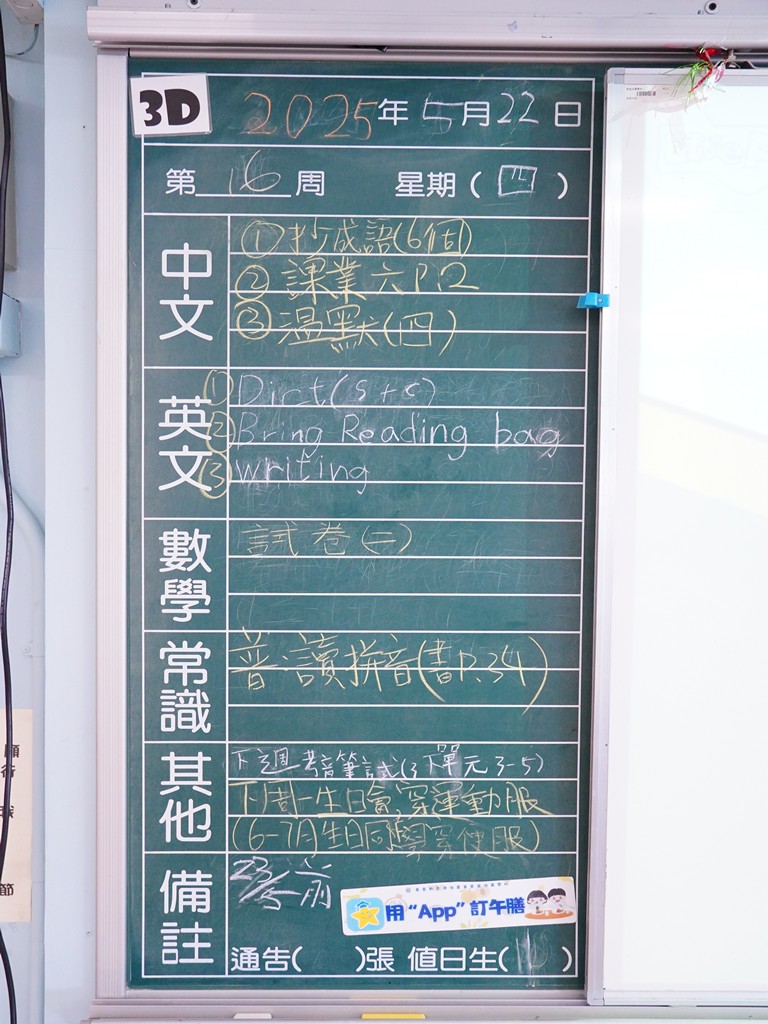 3D
2025年5月22日
第16周 星期(四)
中文
①抄成語(6個)
②課業六P.12
③溫默(四)
英文
①Dict(s+c)
②Bring Reading bag
③writing
數學
試卷(二)
常識
普:讀拼音(書P.34)
其他
下週考音筆試(3下單元3-5)
下周一生日會,穿運動服
(6-7月生日同學穿便服)
備註
23/5前
用“App”訂午膳
通告( )張 值日生( )